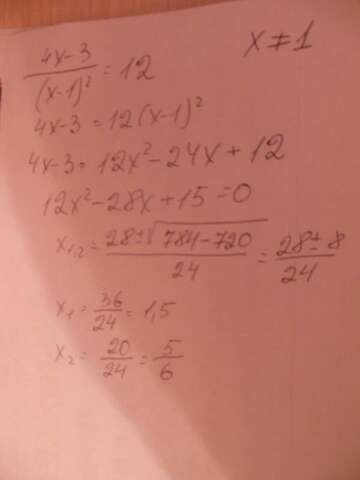 (4x-3)/(x-1)² = 12    x ≠ 1
4x-3 = 12(x-1)²
4x-3 = 12x² - 24x + 12
12x² - 28x + 15 = 0
x₁,₂ = (28 ± √(784-720))/24 = (28 ± 8)/24
x₁ = 36/24 = 1,5
x₂ = 20/24 = 5/6